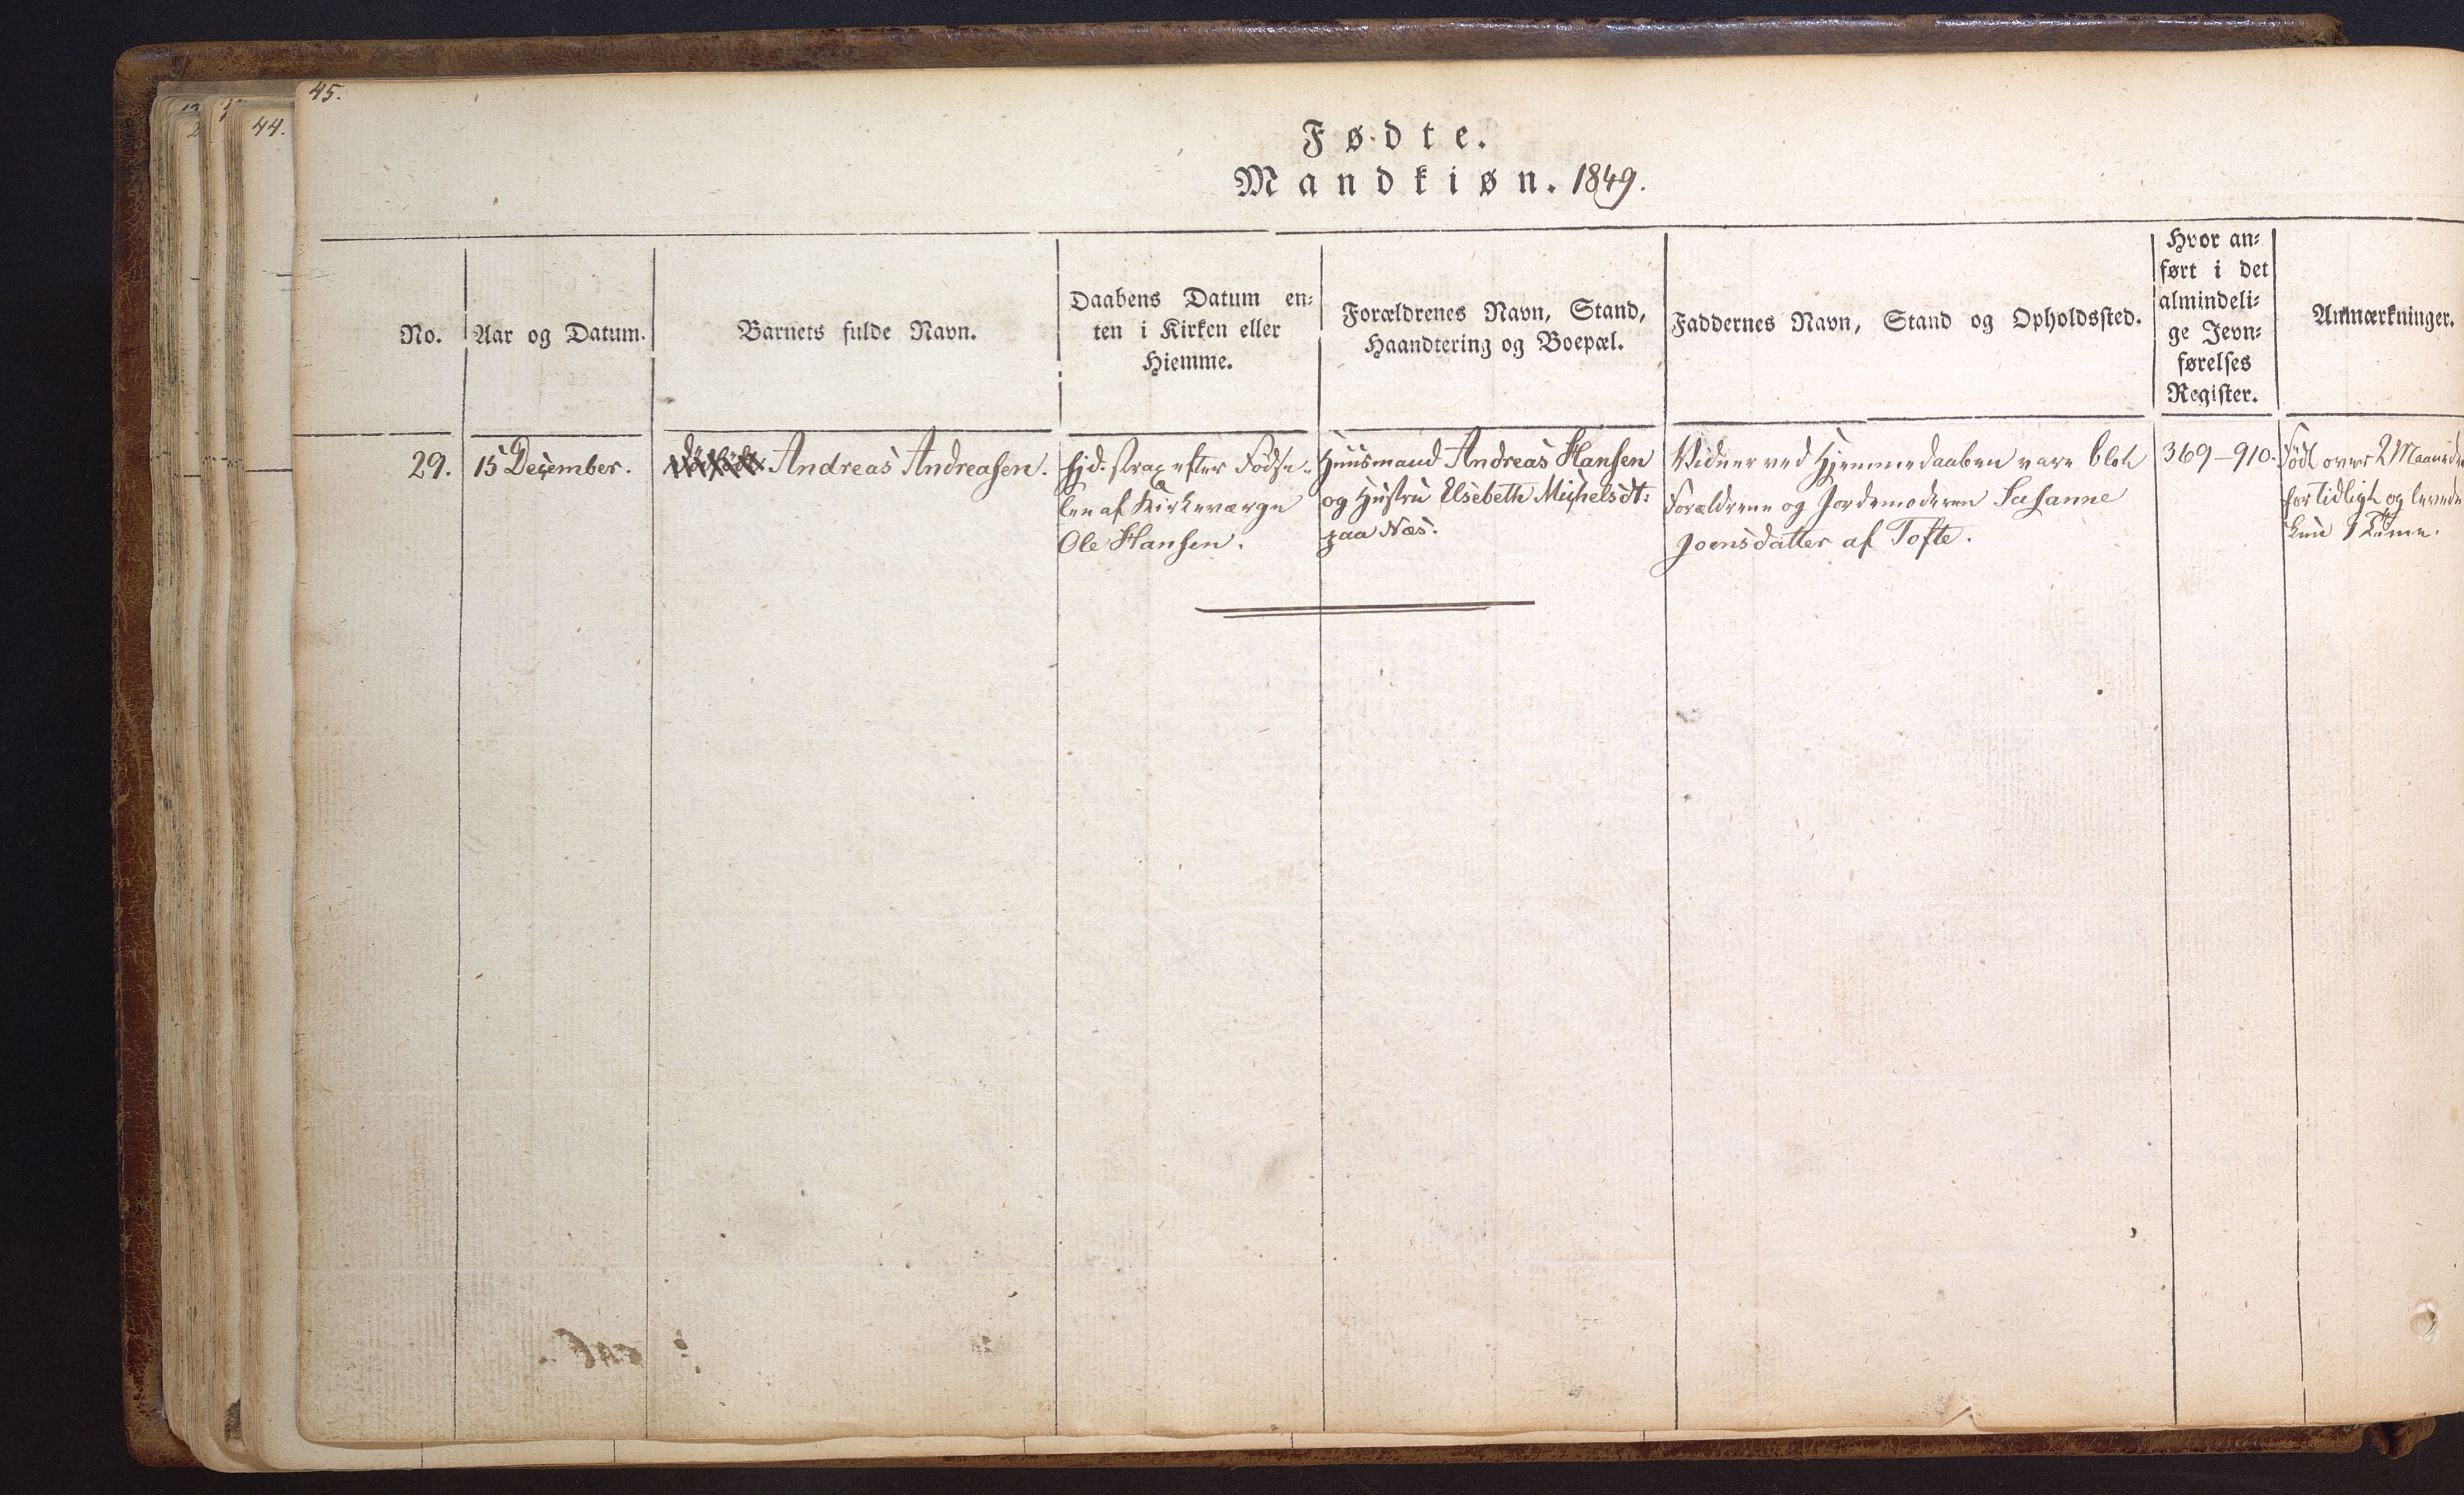 45.
44.
Fødte.
Mandkiøn. 1849.
No.
Aar og Datum.
Barnets fulde Navn.
Daabens Datum en-
ten i Kirken eller
Hiemme.
Forældrenes Navn, Stand,
Haandtering og Boepæl.
Faddernes Navn, Stand og Opholdssted.
Hvor an-
ført i det
almindeli-
ge Jevn-
førelses
Register.
Anmærkninger.
29.
15 December.
Andreas Andreasen.
hjd. strax efter Fødse-
len af Kirkeværge
Ole Hansen.
Huusmand Andreas Hansen
og Hustru Elsebeth Michelsdt:
paa Næs.
Vidner ved Hjemmedaaben vare blot
Forældrene og Jordemoderen Susanne
Joensdatter af Tofte.
369-910.
Født over 2 Maaneder
for tidligt og levede
kun 1 Time.